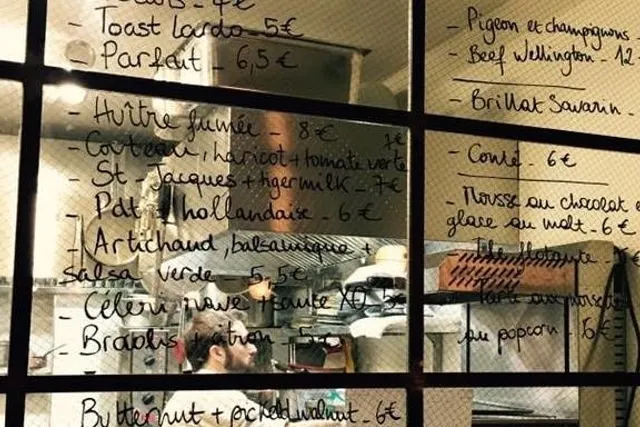 - Toast lardo 5€
- Parfait - 6,5€
- Huître fumée - 8€
- Couteau, haricot + tomate verte 7€
- St Jacques + tigermilk - 7€
- Pdt hollandaise - 6€
- Artichaud, balsamique +
salsa verde - 5,5€
- Céleri rave + sauce XO 5€
- citron - 5€
Butternut + pickled walnut - 6€
- Pigeon et champignons -
- Beef Wellington - 12
- Brillat Savarin -
- Comté - 6€
- Mousse au chocolat e
glace au malt - 6€
- Ile flottante -
- Tarte aux
au popcorn - 6€